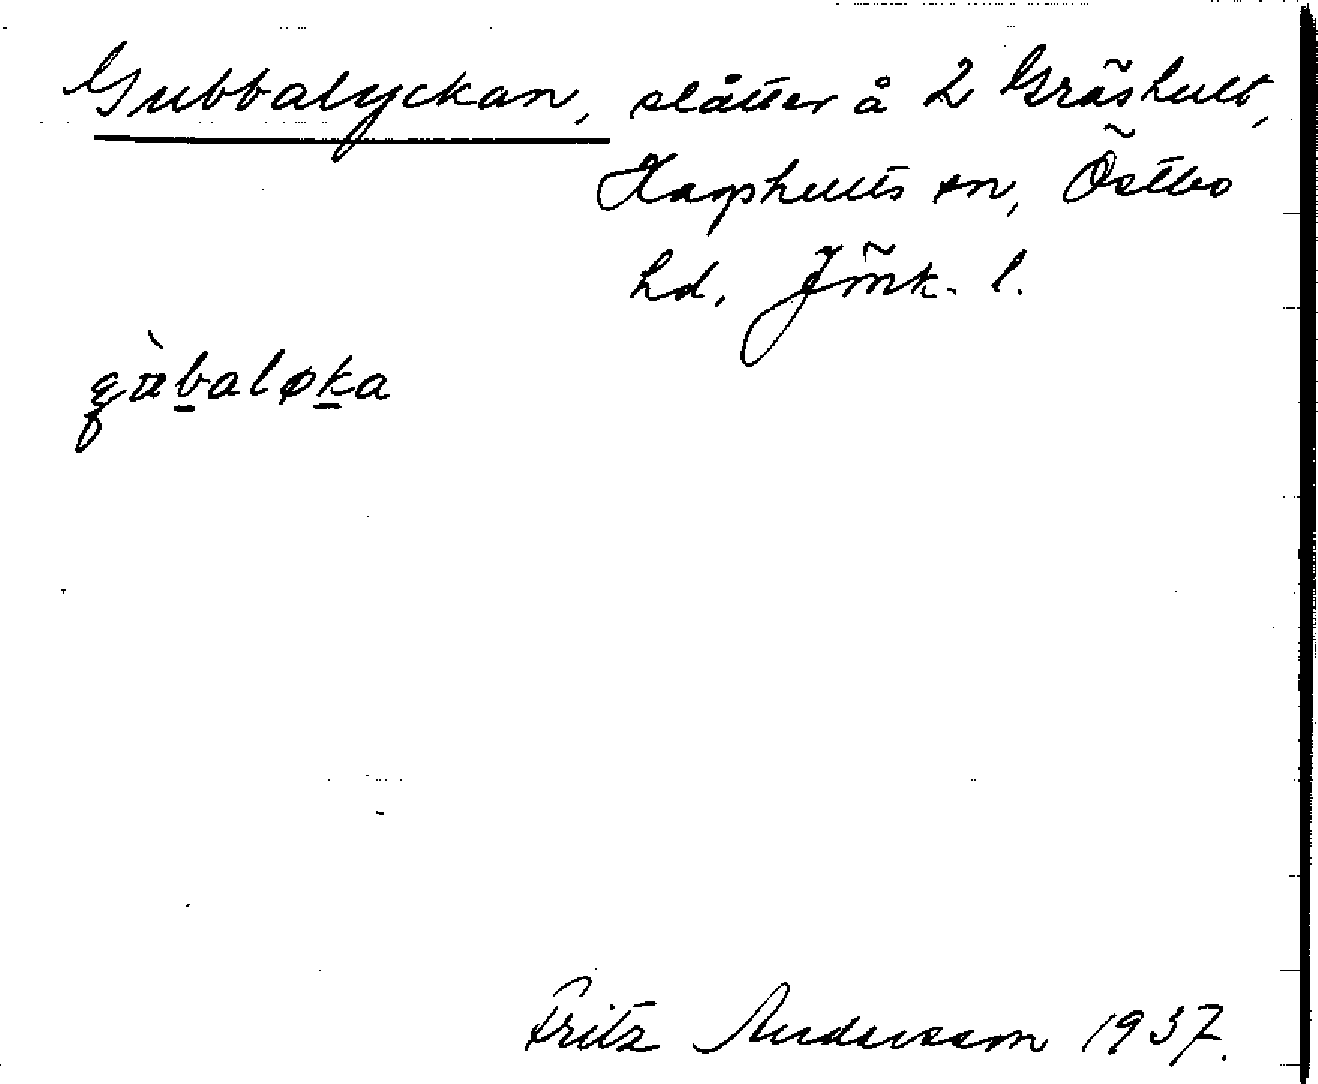 Gubbalyckan, slåtter å 2 Gräshult,
Kärphults sn, Östbo
hd. Jönk. l.
gùbaløka
Fritz Andersson 1937.